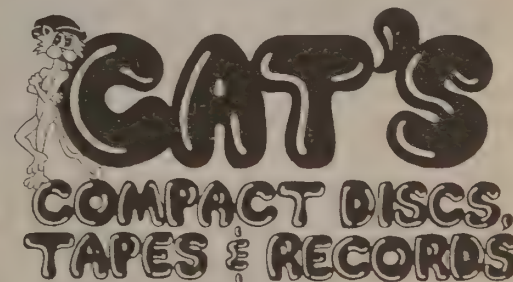 CAT'S
COMPACT DISCS,
TAPES & RECORDS